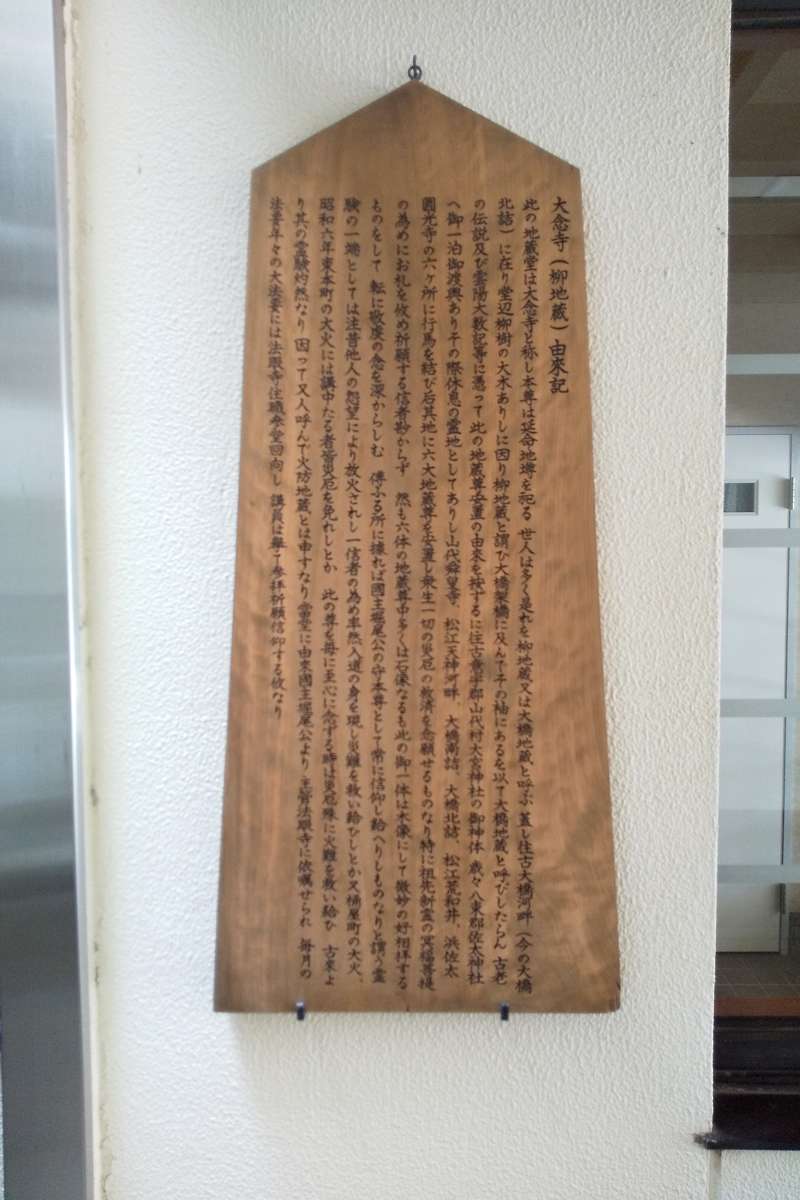 大念寺（柳地蔵）由來記
此の地蔵堂は大念寺と称し本尊は延命地蔵を祀る 世人は多く是れを柳地蔵又は大橋地蔵と呼ぶ 蓋し往古大橋河畔（今の大橋
北詰）に在り堂辺柳樹の大木ありしに因り柳地蔵と謂ひ大橋架橋に及んで子の袖にあるを以て大橋地蔵と呼びしたらん 古老
の伝説及び雲陽大数記等に憑って此の地蔵尊安置の由來を按ずるに往古意宇郡山代村大宮神社の御神体 歳々八束郡佐太神社
へ御一泊御渡輿あり子の際休息の霊地としてありし山代舜望寺、松江天神河畔、大橋南詰、大橋北詰、松江荒和井、浜佐太
圓光寺の六ヶ所に行馬を結び后其地に六大地蔵尊を安置し衆生一切の災厄の救済を念願せるものなり特に祖先餅霊の冥福菩提
の為めにお札を攸め祈願する信者尠からず 然も六体の地蔵尊中多くは石像なるも此の御一体は木像にして微妙の好相拝する
ものをして 転に敬虔の念を深からしむ 傳ふる所に據れば國主堀尾公の守本尊として常に信仰し給へりしものなりと謂う霊
験の一端としては往昔他人の怨望により放火されし一信者の為め率然入道の身を現し災難を救い給ひしとか又桶屋町の大火、
昭和六年東本町の大火には講中たる者皆災厄を免れしとか 此の尊を毎に至心に念ずる時は災厄殊に火難を救い給ひ 古来よ
り其の霊験灼然なり 因って又人呼んで火防地蔵とは申すなり當堂に由來國主堀尾公より主管法眼寺に依嘱せられ 毎月の
法要年々の大法要には法眼寺住職参堂回向し 講員は挙て参拝祈願信仰する攸なり